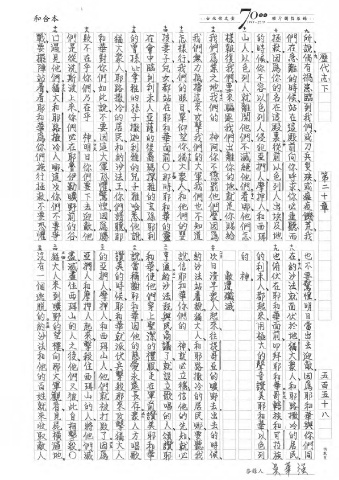 和合本
歷代志下　第二十章　五百五十八
所說倘有禍患臨到我們或刀兵災殃或瘟疫饑荒我
們在急難的時候站在這殿前向你呼求你必垂聽而
拯救因為你的名在這殿裏從前以色列人出埃及地
的時候你不容以色列人侵犯亞捫人摩押人和西珥
山人以色列人就離開他們不滅絕他們看哪他們怎
樣報復我們要來驅逐我們出離你的地就是你賜給
我們為業之地我們的　神阿你不懲罰他們麼因為
我們無力抵擋這來攻擊我們的大軍我們也不知道
怎樣行我們的眼目單仰望你猶大眾人和他們的嬰
孩妻子兒女都站在耶和華面前那時耶和華的靈
在會中臨到利未人亞薩的後裔瑪探雅的玄孫耶利
的曾孫比拿雅的孫子撒迦利雅的兒子雅哈悉他說
猶大眾人耶路撒冷的居民和約沙法王你們請聽耶
和華對你們如此說不要因這大軍恐懼驚惶因為勝
敗不在乎你們乃在乎　神明日你們要下去迎敵他
們是從洗斯坡上來你們必在耶魯伊勒曠野前的谷
口遇見他們猶大和耶路撒冷人哪這次你們不要爭
戰要擺陣站著看耶和華為你們施行拯救不要恐懼
也不要驚惶明日當出去迎敵因為耶和華與你們同
在約沙法就面伏於地猶大眾人和耶路撒冷的居民
也俯伏在耶和華面前叩拜耶和華哥轄族和可拉族
的利未人都起來用極大的聲音讚美耶和華以色列
的　神
敵潰殲滅
次日清早眾人起來往提哥亞的曠野去出去的時候
約沙法站著說猶大人和耶路撒冷的居民哪要聽我
說信耶和華你們的　神就必立穩信他的先知就必
亨通約沙法既與民商議了就設立歌唱的人頌讚耶
和華使他們穿上聖潔的禮服走在軍前讚美耶和華
說當稱謝耶和華因他的慈愛永遠長存眾人方唱歌
讚美的時候耶和華就派伏兵擊殺那來攻擊猶大人
的亞捫人摩押人和西珥山人他們就被打敗了因為
亞捫人和摩押人起來擊殺住西珥山的人將他們滅
盡滅盡住西珥山的人之後他們又彼此自相擊殺
猶大人來到曠野的望樓向那大軍觀看見屍橫遍地
沒有一個逃脫的約沙法和他的百姓就來收取敵人